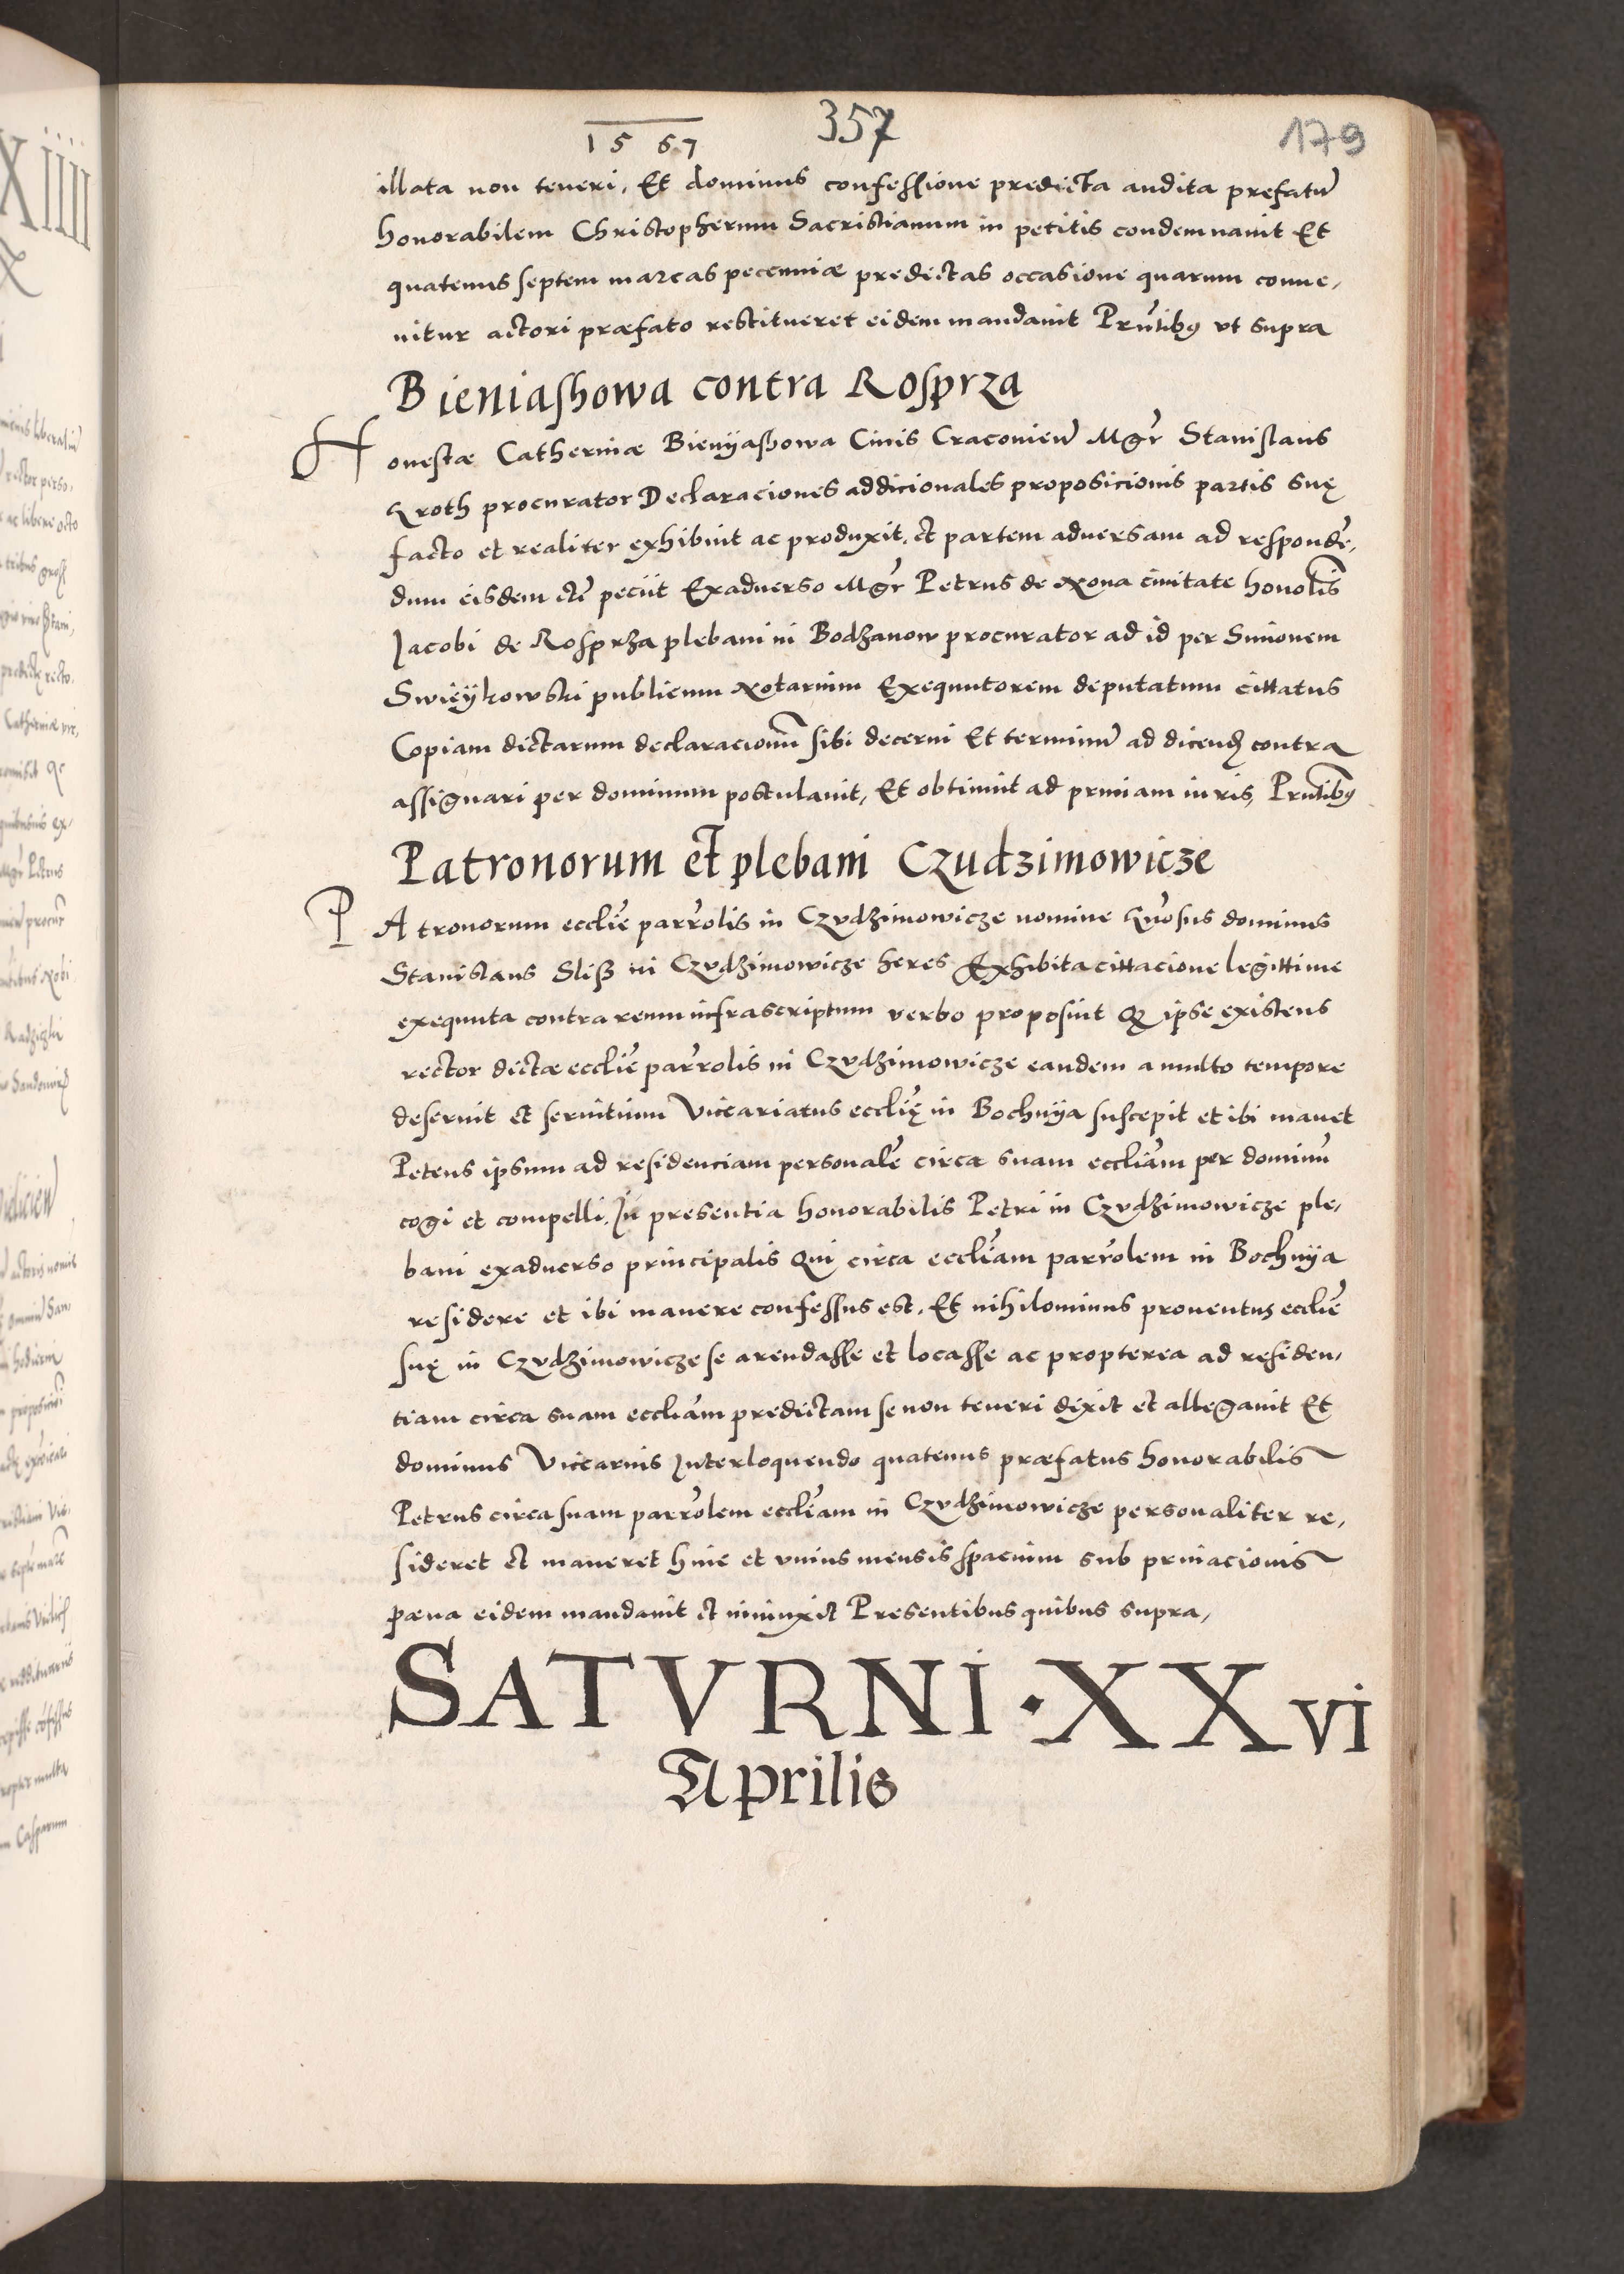 1567
357
179
illata non teneri, Et dominus confessione predicta audita prefatũ
honorabilem Christopherum Sacristianum in petitis condemnavit Et
quatenus septem marcas pecemniæ predictas occasione quarum conve,
nitur actori præfato restitueret eidem mandavit Prñtibꝫ ut supra
Bieniashowa contra Rosprza
Honestæ Catherinæ Bienyashowa Civis Cracovien̄ Mgr̃ Stanislaus
Kroth procurator Declaraciones addicionales proposicionis partis suę
facto et realiter exhibuit ac produxit, et partem adversam ad respondẽ,
dum eisdem etc̃ peciit Exadverso Mgr̃ Petrus de Nova civitate honolis̃
Jacobi de Rosprza plebani in Bodzanow procurator ad id per Simonem
Swieykowski publicum Notarium Exequutorem deputatum cittatus
Copiam dictarum declaracionũ sibi decerni Et terminũ ad dicend̃ contra
assignari per dominum postulavit, Et obtinuit ad primam iuris, Prñtibꝫ
Patronorum et plebani Czudzimowicze
PAtronorum ecclie͂ parr̃olis in Czudzimowicze nomine Gñosus dominus
Stanislaus Sliß in Czudzimowicze heres Exhibita cittacione legittime
exequuta contra reum infrascriptum verbo proposuit Qꝫ ipse existens
rector dictæ ecclie͂ parr̃olis in Czudzimowicze eandem a multo tempore
deseruit et servitium Vicariatus eccl̃ię in Bochnya suscepit et ibi manet
Petens ipsum ad residenciam personalẽ circa suam eccliãm per dominũ
cogi et compelli, In presentia honorabilis Petri in Czudzimowicze ple,
bani exadverso principalis Qui circa eccliãm parr̃olem in Bochnya
residere et ibi manere confessus est, Et nihilominus proventus ecclie͂
suę in Czudzimowicze se arendasse et locasse ac propterea ad residen,
tiam circa suam eccliãm predictam se non teneri dixit et allegavit Et
dominus Vicarius Interloquendo quatenus præfatus honorabilis
Petrus circa suam parr̃olem eccliãm in Czudzimowicze personaliter re,
sideret et maneret hinc et unius mensis spacium sub privacionis
pæna eidem mandavit et iniunxit Presentibus quibus supra,
SATVRNI · XXvi
Aprilis